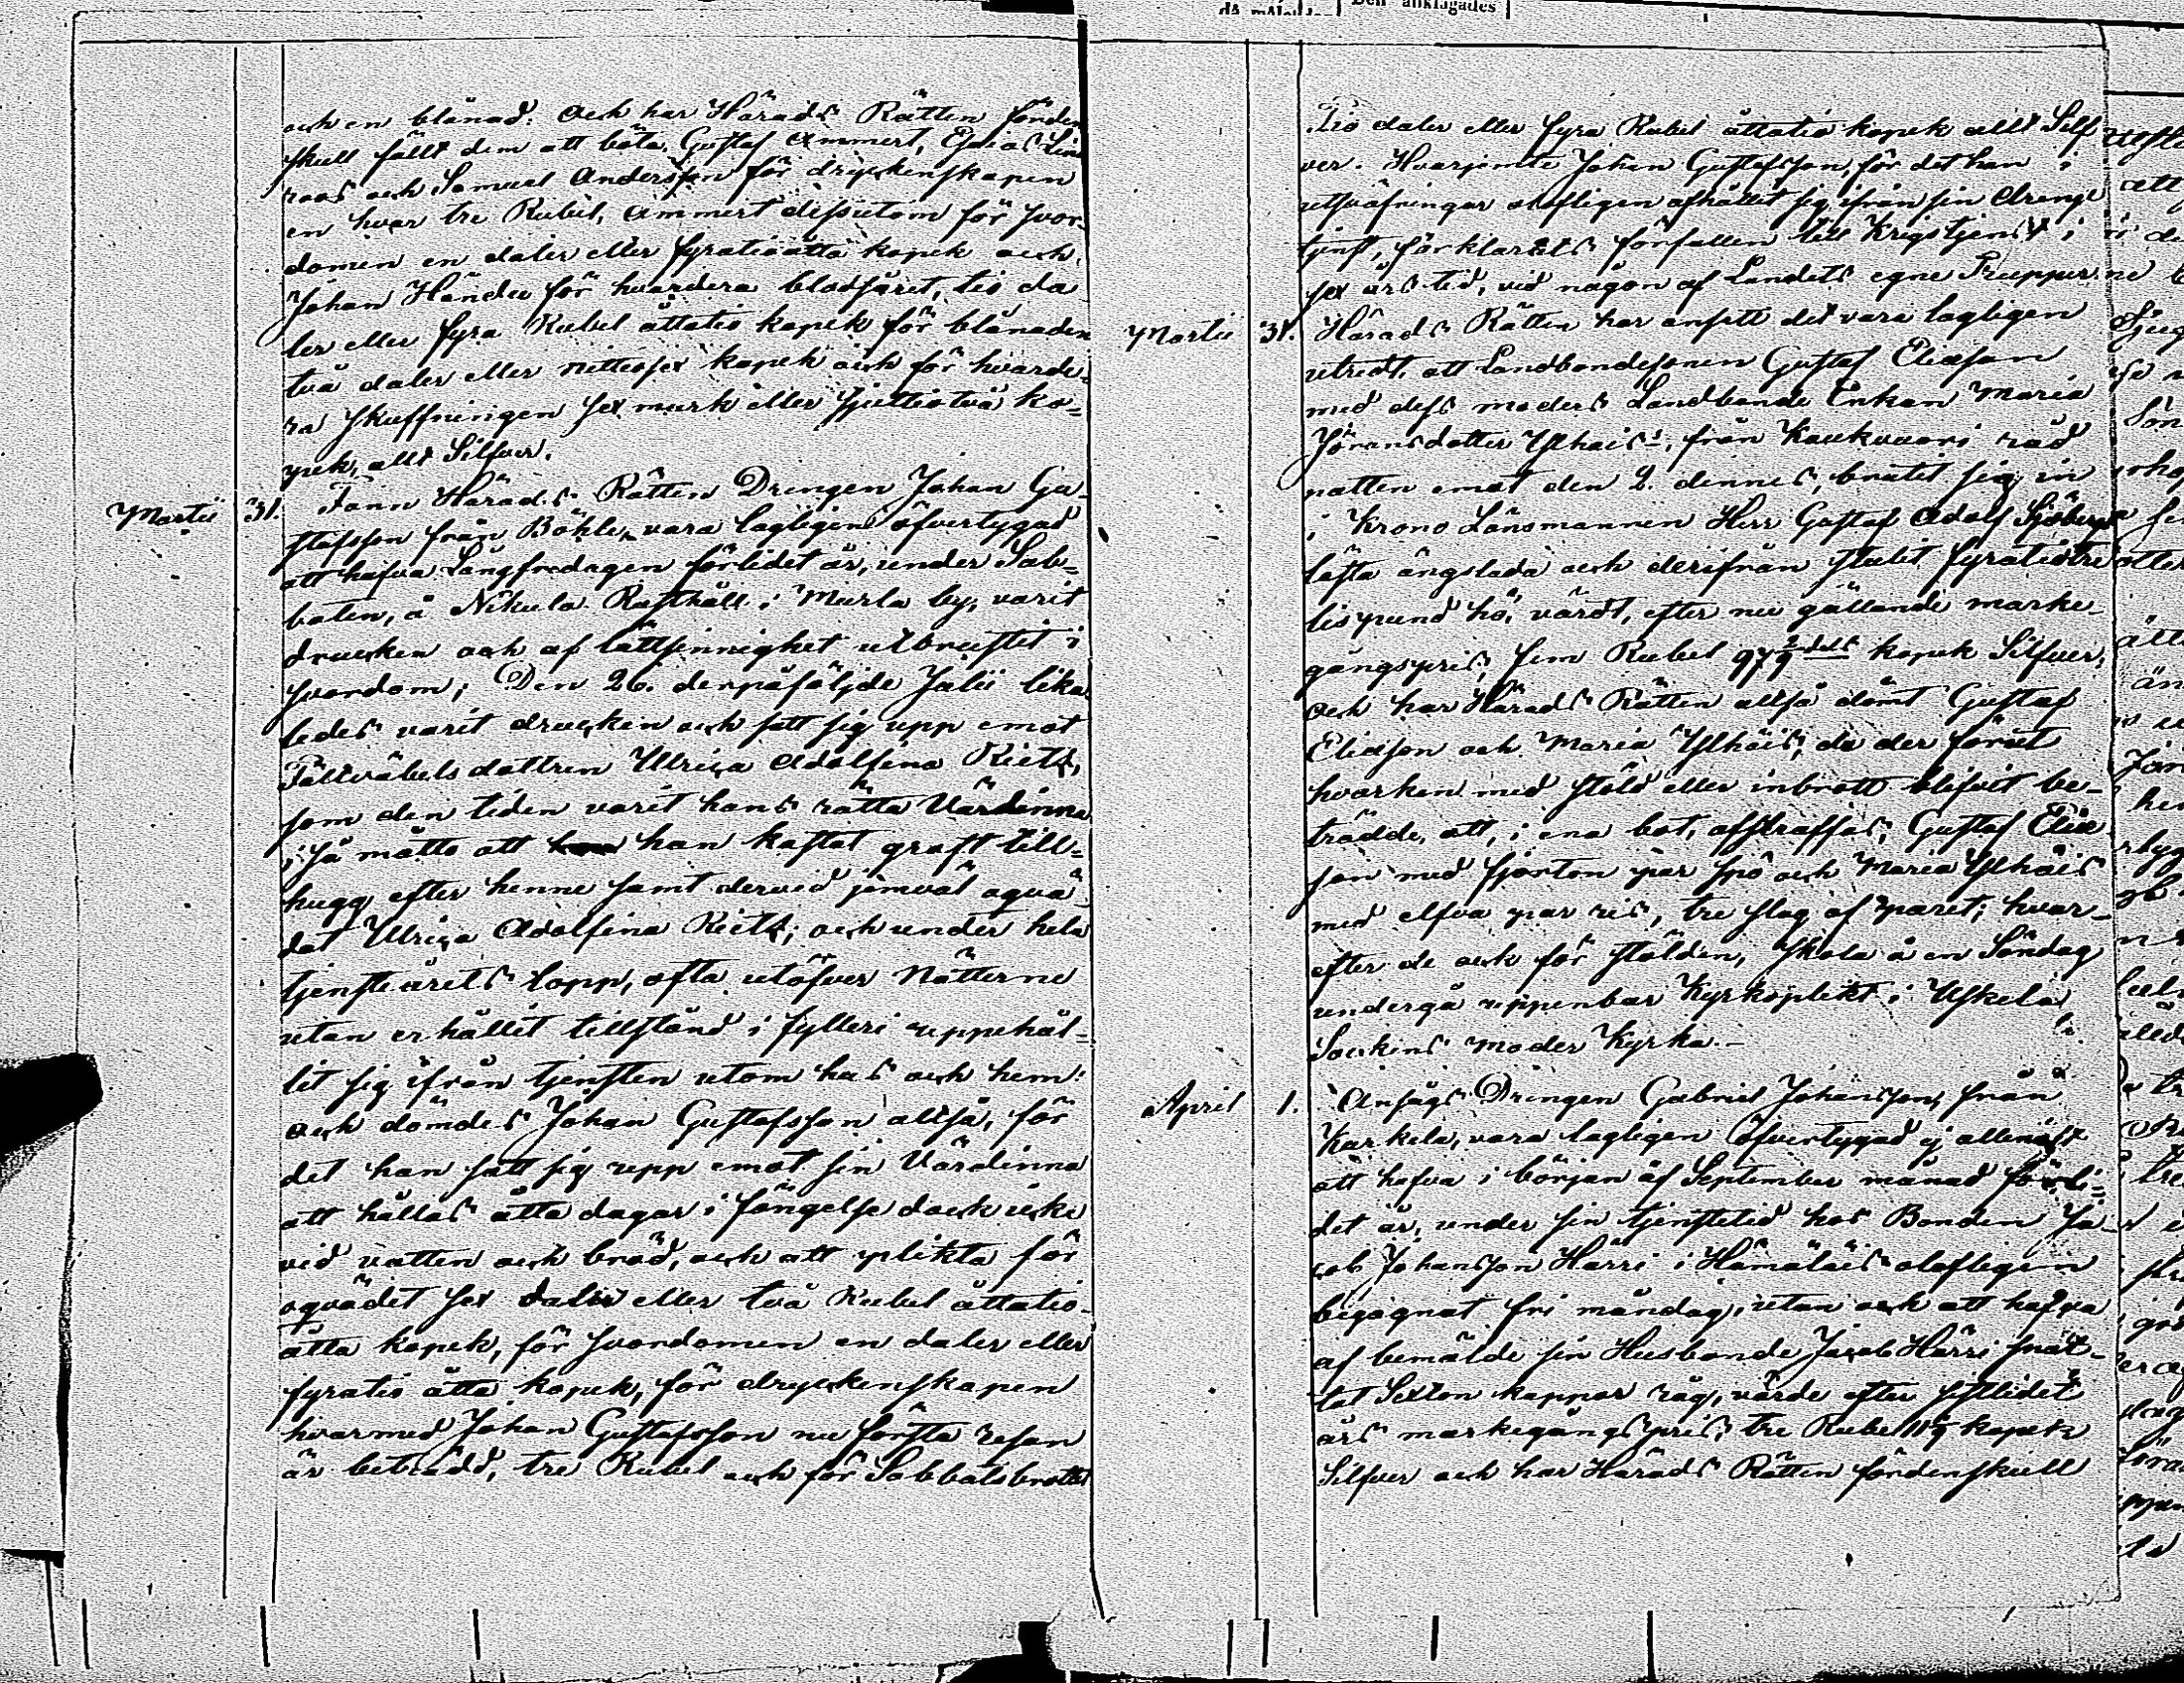 och en blånad. Och har Härads Rätten förden
skull fällt dem att böta, Gustaf Ammert, Esaias Lind
roos och Samuel Andersson för dryckenskapen
en hvar tre Rubel, Ammert dessutom för svor-
domen en daler eller fyratioåtta kopek och
Johan Hander för hvardera blodsåret, tio da
ler eller fyra Rubel åttatio kopek för blånaden
två daler eller nittiosex kopek och för hvarde-
ra skuffningen sex mark eller sjuttiotvå ko-
pek, allt Silfver.
Martii 31. Fann Härads Rätten Drengen Johan Gu-
stafsson från Böhle, vara lagligen öfvertygad
att hafva Långfredagen förlidet år, under Sab-
baten, å Nikula Rusthåll i Murla by, varit
drucken och af lättsinnighet utbrustit i
svordom; Den 26. derpåföljde Julii lika
ledes varit drucken och satt sig upp emot
Fältväbels dottren Ulrica Adolfina Rietz,
som den tiden varit hans rätta Värdinna
i så måtto att han kastat graft till-
hugg efter henne samt dervid jemväl oqvä-
dat Ulrica Adolfina Rietz; och under hela
tjensteårets lopp, ofta utöfver Nätterne
utan erhållit tillstånd i fylleri uppehål-
lit sig ifrån tjensten utom hus och hem:
och dömdes Johan Gustafsson altså, för
det han satt sig upp emot sin Värdinna
att hållas åtta dagar i fängelse dock icke
vid vatten och bröd, och att plikta för
oqvädet sex daler eller två Rubel åttatio-
åtta kopek, för svordomen en daler eller
fyratio åtta kopek, för dryckenskapen
hvarmed Johan Gustafsson nu första resan
är beträdd, tre Rubel och för Sabbatsbrottet
Tio daler eller fyra Rubel åttatio kopek allt Silf
ver. Hvarjemte Johan Gustafsson, för det han i
utsväfningar olofligen afhållit sig ifrån sin drenge
tjenst, förklarats förfallen till Krigstjenst i
sex års tid, vid någon af Landets egne Trupper.
Martii 31. Härads Rätten har ansett det vara lagligen
utredt, att Landbondesonen Gustaf Eliasson
med dess moder Landbonde Enkan Maria
Jöransdotter Ylhäis, från Kaukuuari råd
natten emot den 2. dennes, brutit sig in
i Krono Länsmannen Herr Gustaf Adolf Sjöbergs
låsta ängslada och derifrån stulit fyratiotre
lispund hö, värdt, efter nu gällande marke-
gångspris, fem Rubel 97 kopek Silfver,
och har Härads Rätten altså dömt Gustaf
Eliasson och Maria Ylhäis, de der förut
hvarken med stöld eller inbrott blifvit be-
trädde, att, i ena bot, afstraffas, Gustaf Elias
son med fjorton par spö och Maria Ylhäis
med elfva par ris, tre slag af paret; hvar-
efter de ock för stölden, skola å en Söndag
undergå uppenbar Kyrkoplikt i Uskela
Sockens moder Kyrka.-
April 1. Ansågs Drengen Gabriel Johansson, från
Karkela, vara lagligen öfvertygad ej allenast
att hafva i början af September månad förli-
det år, under sin tjenstetid hos Bonden Ja-
cob Johansson Härri i Hämäläis olofligen
begagnat fri måndag, utan ock att hafva
af bemälde sin Husbonde Jacob Härri snat-
tat Sexton kappar råg, värde efter sistlidet
års markegångspris, tre Rubel kopek
Silfver och har Härads Rätten fördenskull